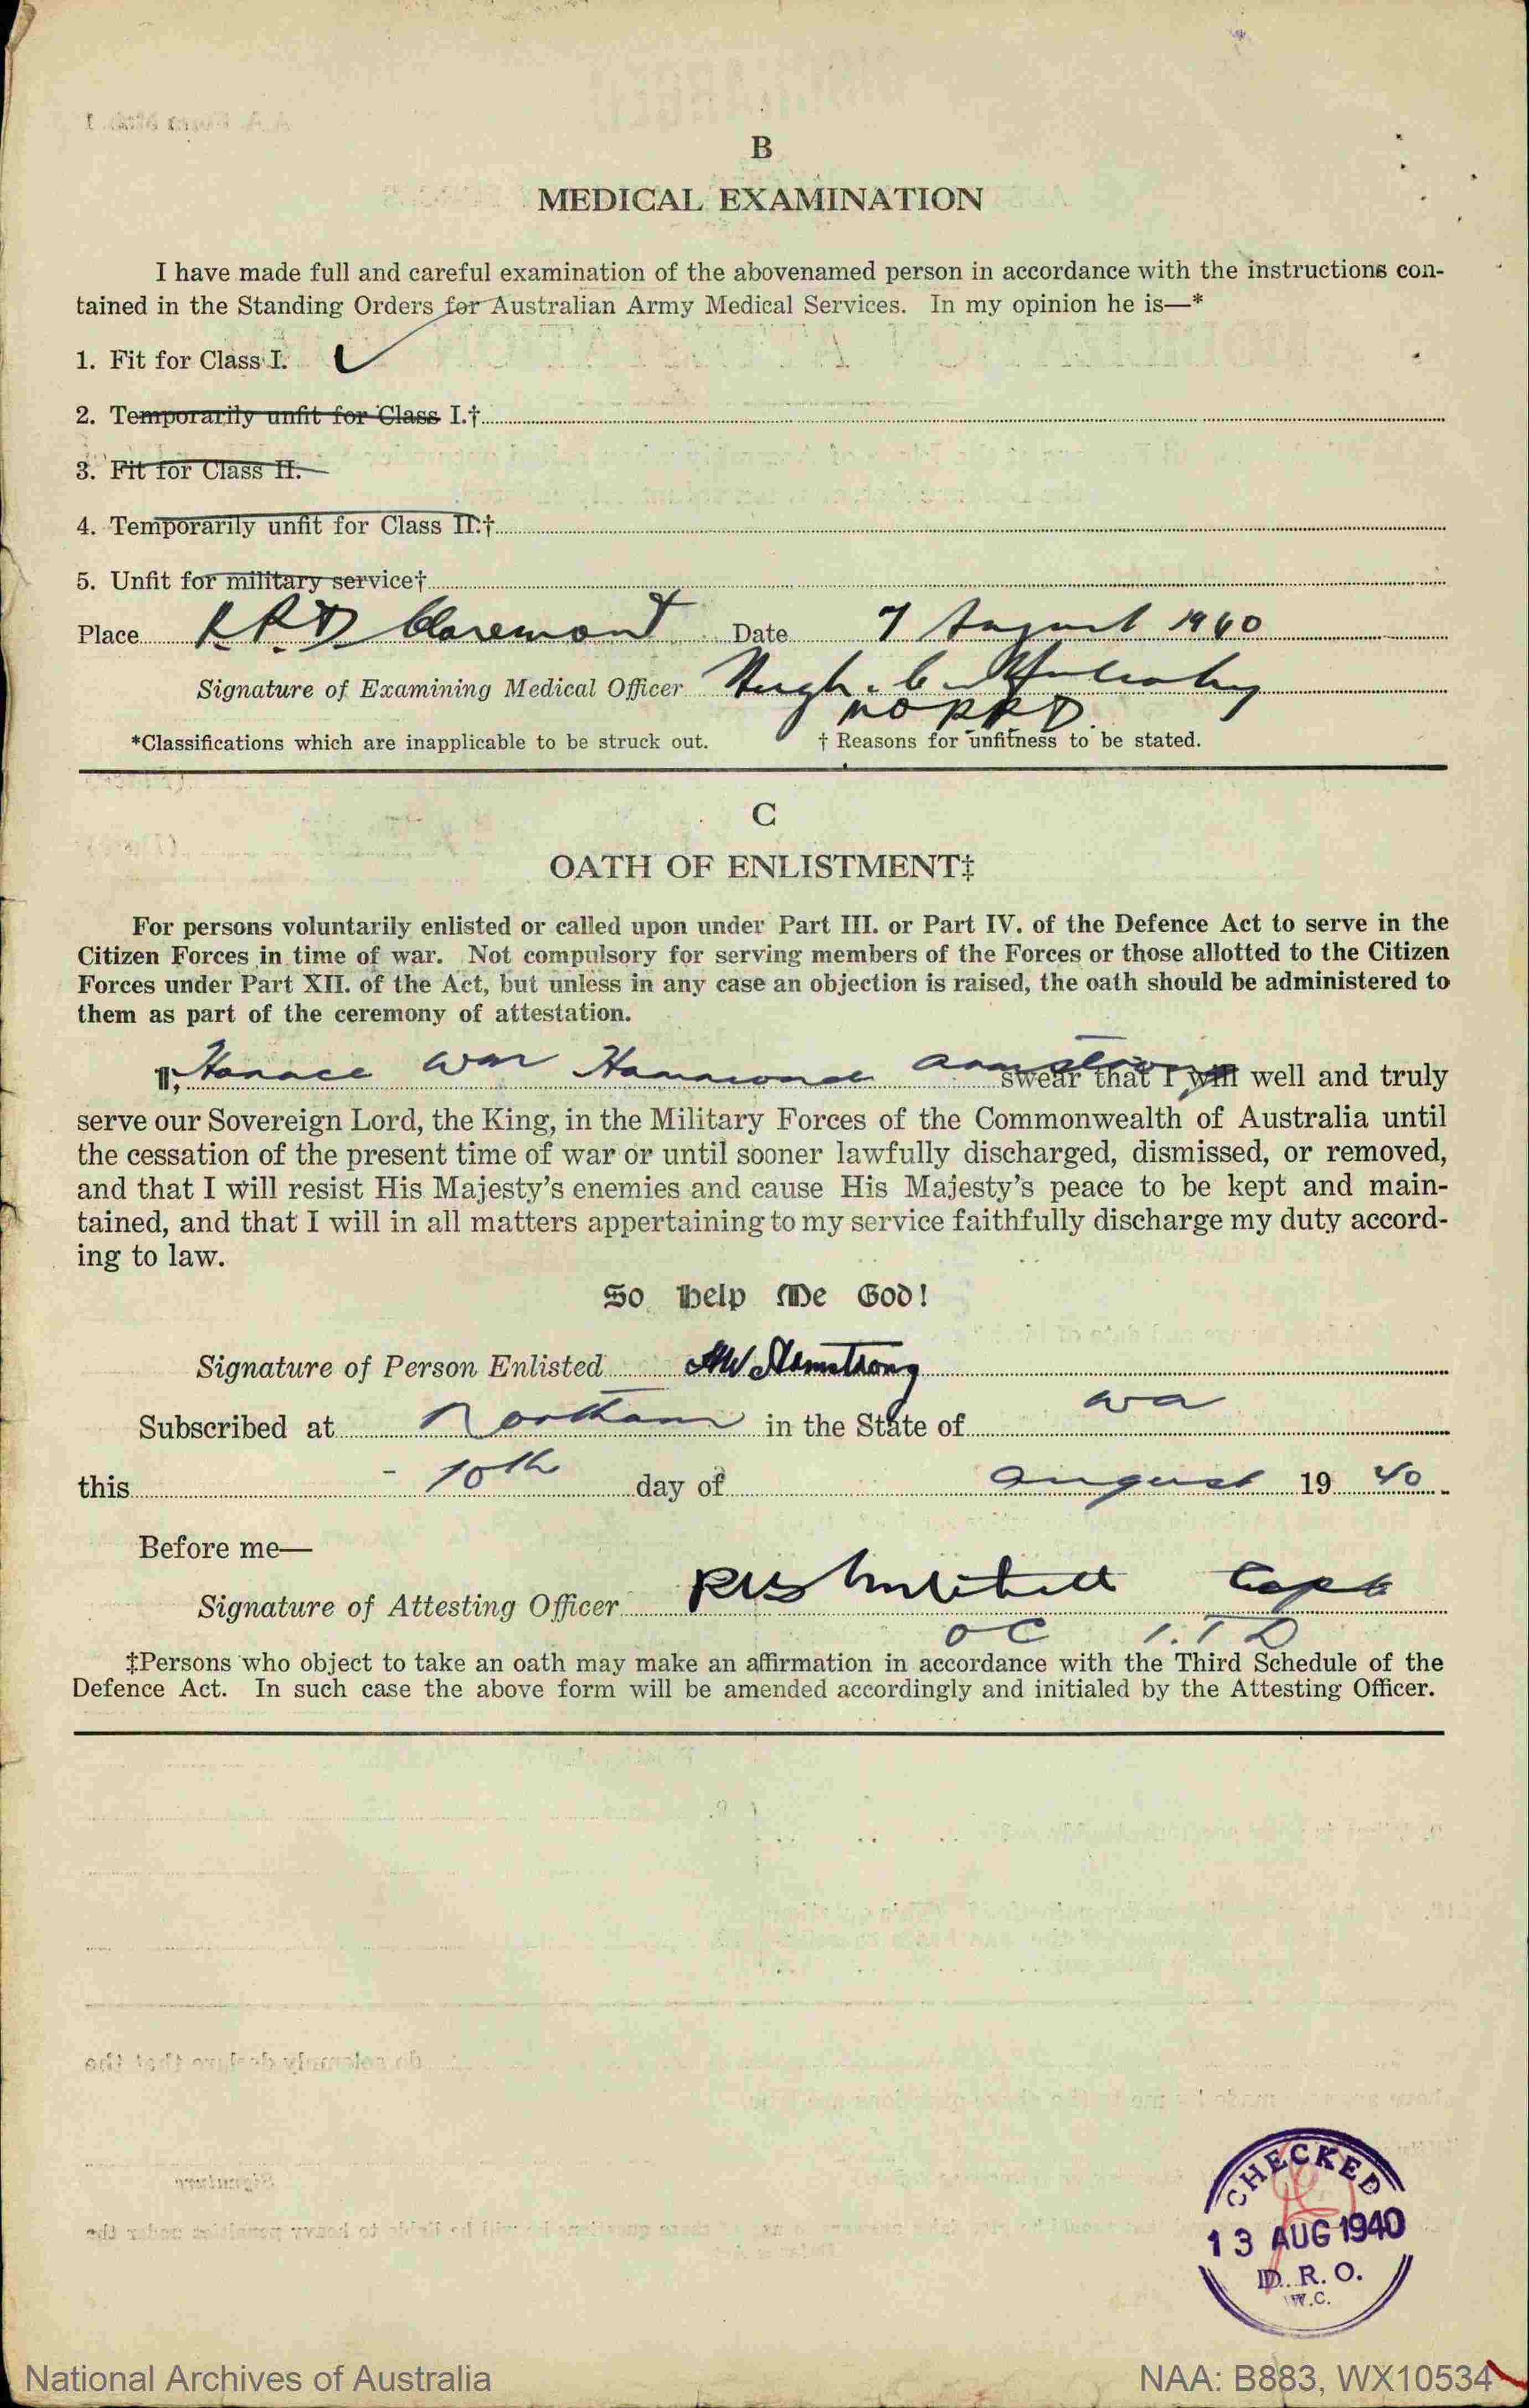 B
MEDICAL EXAMINATION
I have made full and careful examination of the abovenamed person in accordance with the instructions con-
tained in the Standing Orders for Australian Army Medical Services. In my opinion he is—*
1. Fit for Class I.
2. Temporarily unfit for Class I.†
3. Fit for Class II.
4. Temporarily unfit for Class II.†
5. Unfit for military service†
Place R.R.D. Claremont Date 7 August 1940
Signature of Examining Medical Officer Hugh. C.
*Classifications which are inapplicable to be struck out. † Reasons for unfitness to be stated.
C
OATH OF ENLISTMENT‡
For persons voluntarily enlisted or called upon under Part III. or Part IV. of the Defence Act to serve in the
Citizen Forces in time of war. Not compulsory for serving members of the Forces or those allotted to the Citizen
Forces under Part XII. of the Act, but unless in any case an objection is raised, the oath should be administered to
them as part of the ceremony of attestation.
I, Horace War Hammond Armstrong swear that I will well and truly
serve our Sovereign Lord, the King, in the Military Forces of the Commonwealth of Australia until
the cessation of the present time of war or until sooner lawfully discharged, dismissed, or removed,
and that I will resist His Majesty's enemies and cause His Majesty's peace to be kept and main-
tained, and that I will in all matters appertaining to my service faithfully discharge my duty accord-
ing to law.
So Help Me God!
Signature of Person Enlisted HW Armstrong
Subscribed at Northam in the State of WA
this - 10th day of August 19 40.
Before me—
Signature of Attesting Officer Capt
OC I.T.D
‡Persons who object to take an oath may make an affirmation in accordance with the Third Schedule of the
Defence Act. In such case the above form will be amended accordingly and initialed by the Attesting Officer.
CHECKED
13 AUG 1940
D.R.O.
W.C.
National Archives of Australia NAA: B883, WX10534